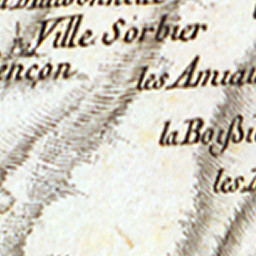 Ville Sorbier
ençon
les Amiau
la Boißi
les